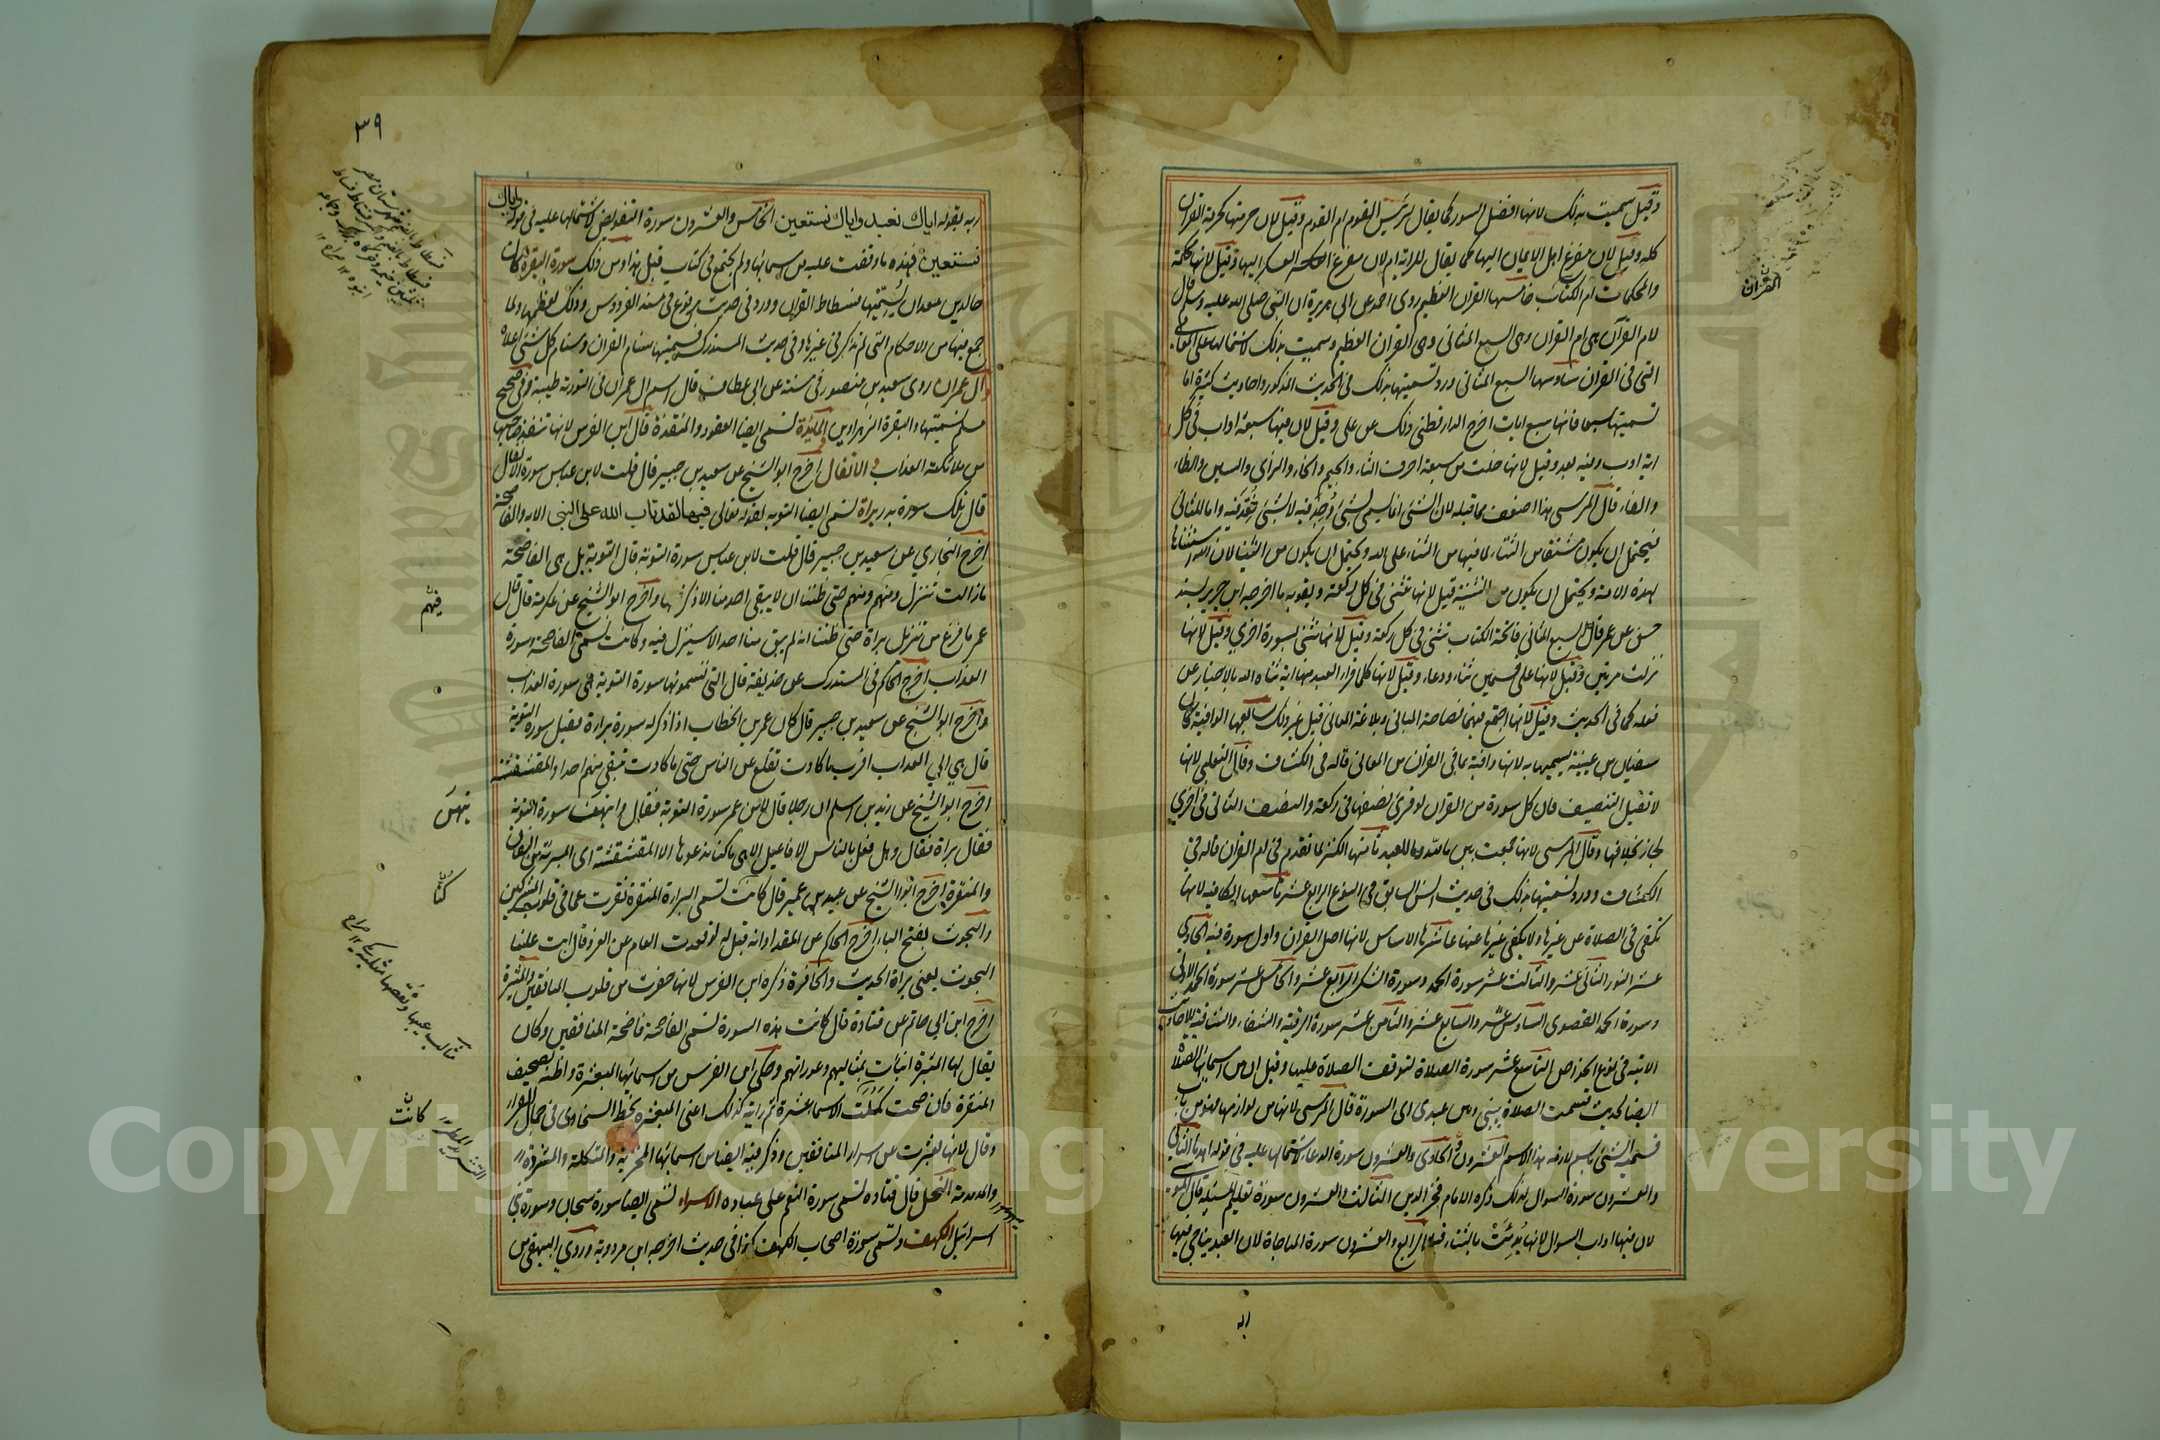 وقيل سميت بذلك لانها افضل السور كما يقال لرئيس القوم ام القوم وقيل لان حرمتها كحرمة القران
كله وقيل لان مفزع اهل الايمان اليها كما يقال للراية ام لان مفزع العسكر اليها وقيل لانها محكمة
والمحكمات ام الكتاب خامسها القران العظيم روى احمد عن ابي هريرة ان النبي صلى الله عليه وسلم قال
لام القرآن هي ام القران وهي السبع المثاني وهي القران العظيم وسميت بذلك لاشتمالها على المعاني
التي في القران سادسها السبع المثاني ورد تسميتها بذلك في الحديث المذكور واحاديث كثيرة اما
تسميتها سبعا فانها سبع ايات اخرج الدارقطني ذلك عن علي وقيل لان فيها سبعة اداب في كل
اية ادب وفيه بعد وقيل لانها خلت من سبعة احرف الثاء والجيم والخاء والزاي والشين والظاء
والفاء قال المرسي هذا اضعف مما قبله لان الشئ انما يسمى بشئ وجد فيه لا بشئ فقد فيه واما المثاني
فيحتمل ان يكون مشتقا من الثناء لما فيها من الثناء على الله ويحتمل ان يكون من الثنيا لان الله استثناها
لهذه الامة ويحتمل ان يكون من التثنية قيل لانها تثنى في كل ركعة ويقويه ما اخرجه ابن جرير بسند
حسن عن عمر قال السبع المثاني فاتحة الكتاب تثنى في كل ركعة وقيل لانها تثنى بسورة اخرى وقيل لانها
نزلت مرتين وقيل لانها على قسمين ثناء ودعاء وقيل لانها كلما قرأ العبد منها اية ثناه الله بالاخبار عن
فعله كما في الحديث وقيل لانها اجتمع فيها فصاحة المباني وبلاغة المعاني وقيل غير ذلك سابعها الوافية كان
سفيان بن عيينة يسميها به لانها وافية بما في القران من المعاني قاله في الكشاف وقال الثعلبي لانها
لا تقبل التنصيف فان كل سورة من القران لو قرئ نصفها في ركعة والنصف الثاني في اخرى
لجاز بخلافها وقال المرسي لانها جمعت بين ما لله وما للعبد ثامنها الكنز لما تقدم في ام القران قاله في
الكشاف وورد تسميتها بذلك في حديث انس السابق في النوع الرابع عشر تاسعها الكافية لانها
تكفي في الصلاة عن غيرها ولا يكفي غيرها عنها عاشرها الاساس لانها اصل القران واول سورة فيه الحادي
عشر النور الثاني عشر والثالث عشر سورة الحمد وسورة الشكر الرابع عشر والخامس عشر سورة الحمد الاولى
وسورة الحمد القصوى السادس عشر والسابع عشر والثامن عشر سورة الرقية والشفاء والشافية للاحاديث
الاتية في نوع الخواص التاسع عشر سورة الصلاة لتوقف الصلاة عليها وقيل ان من اسمائها الصلاة
ايضا لحديث قسمت الصلاة بيني وبين عبدي اى السورة قال المرسي لانها من لوازمها فهو من باب
تسمية الشئ باسم لازمه هذا الاسم العشرون الحادي والعشرون سورة الدعاء لاشتمالها عليه في قوله اهدنا الثاني
والعشرون سورة السوال لذلك ذكره الامام فخر الدين الثالث والعشرون سورة تعليم المسئلة قال المرسي
لان فيها اداب السوال لانها بدئت بالثناء قبله الرابع والعشرون سورة المناجاة لان العبد يناجي فيها
ربه
القران
٣٩
ربه بقوله اياك نعبد واياك نستعين الخامس والعشرون سورة التفويض لاشتمالها عليه في قوله واياك
نستعين فهذه ما وقفت عليه من اسمائها ولم يجتمع في كتاب قبل هذا ومن ذلك سورة البقرة كان
خالد بن معدان يسميها فسطاط القران وورد في حديث مرفوع في مسند الفردوس وذلك لعظمها ولما
جمع فيها من الاحكام التي لم تذكر في غيرها وفي حديث المستدرك تسميتها سنام القران وسنام كل شئ اعلاه
وآل عمران روى سعيد بن منصور في سننه عن ابي عطاف قال اسم ال عمران في التورية طيبة وفي صحيح
مسلم تسميتها والبقرة الزهراوين المائدة تسمى ايضا العقود والمنقذة قال ابن الفرس لانها تنقذ صاحبها
من ملائكة العذاب الانفال اخرج ابو الشيخ عن سعيد بن جبير قال قلت لابن عباس سورة الانفال
قال تلك سورة بدر براة تسمى ايضا التوبة لقوله تعالى فيها لقد تاب الله على النبي الاية والفاضحة
اخرج البخاري عن سعيد بن جبير قال قلت لابن عباس سورة التوبة قال التوبة بل هي الفاضحة
ما زالت تنزل ومنهم ومنهم حتى ظننا ان لا يبقى احد منا الا ذكر فيها واخرج ابو الشيخ عن عكرمة قال قال
عمر ما فرغ من تنزيل براة حتى ظننا انه لم يبق منا احد الا سينزل فيه وكانت تسمى الفاضحة وسورة
العذاب اخرج الحاكم في المستدرك عن حذيفة قال التي تسمونها سورة التوبة هي سورة العذاب
واخرج ابو الشيخ عن سعيد بن جبير قال كان عمر بن الخطاب اذا ذكر له سورة براءة فقيل سورة التوبة
قال هي الى العذاب اقرب ما كادت تقلع عن الناس حتى ما كادت تبقي منهم احدا والمقشقشة
اخرج ابو الشيخ عن زيد بن اسلم ان رجلا قال لابن عمر سورة التوبة فقال وايتهن سورة التوبة
فقال براة فقال وهل فعل بالناس الافاعيل الا هي ما كنا ندعوها الا المقشقشة اى المبرئة من النفاق
والمنقرة اخرج ابو الشيخ عن عبيد بن عمير قال كانت تسمى البراءة المنقرة نقرت عما في قلوب المشركين
والبحوث بفتح الباء اخرج الحاكم عن المقداد انه قيل له لو قعدت العام عن الغزو قال ابت علينا
البحوث يعني براة الحديث والحافرة ذكره ابن الفرس لانها حفرت عن قلوب المنافقين والمثيرة
اخرج ابن ابي حاتم عن قتادة قال كانت هذه السورة تسمى الفاضحة فاضحة المنافقين وكان
يقال لها المثيرة انبأت بمثالبهم وعوراتهم وحكى ابن الفرس من اسمائها المبعثرة واظنه تصحيف
المنقرة فان صحت كملت الاسماء عشرة ثم رايته كذلك اعنى المبعثرة بخط السخاوي في جمال القراء
وقال لانها بعثرت عن اسرار المنافقين وذكر فيه ايضا من اسمائها المخزية والمنكلة والمشردة
والمدمدمة النحل قال قتادة تسمى سورة النعم على عباده الاسراء تسمى ايضا سورة سبحان وسورة بني
اسرائيل الكهف وتسمى سورة اصحاب الكهف كذا في حديث اخرجه ابن مردوية وروى البيهقي من
فيهم
كنا
كانت